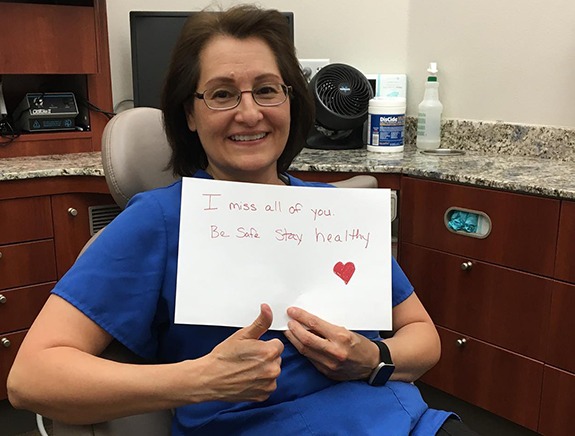 I miss all of you.
Be Safe Stay healthy
DisCide